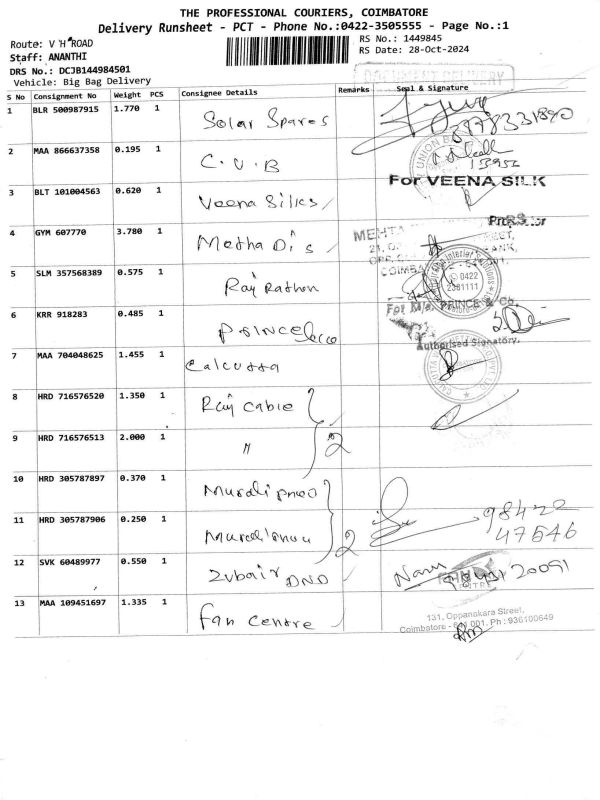 THE PROFESSIONAL COURIERS, COIMBATORE
Delivery Runsheet - PCT - Phone No.:0422-3505555 - Page No.:1
Route: V H ROAD
RS No.: 1449845
Staff: ANANTHI
RS Date: 28-Oct-2024
DRS No.: DCJB144984501
Vehicle: Big Bag Delivery
DOCUMENT DELIVERY
S No Consignment No Weight PCS Consignee Details Remarks Seal & Signature
1 BLR 500987915 1.770 1 Solar Spares
2 MAA 866637358 0.195 1 C.U.B
UNION B
3 BLT 101004563 0.620 1 Veena Silks
For VEENA SILK
4 GYM 607770 3.780 1 Metha Di's
MEHTA
COIMBA
5 SLM 357568389 0.575 1 Raj Rathon
0422
2381111
6 KRR 918283 0.485 1 Prince &co
For M/s. PRINCE & Co.
Authorised Signatory.
7 MAA 704048625 1.455 1 Calcutta
8 HRD 716576520 1.350 1 Raj Cable
9 HRD 716576513 2.000 1 " 2
10 HRD 305787897 0.370 1
98422
47546
11 HRD 305787906 0.250 1 2
12 SVK 60489977 0.550 1 Zubair DND
13 MAA 109451697 1.335 1 Fan Centre
131, Oppanakara Street,
Coimbatore - 641 001. Ph : 936100649